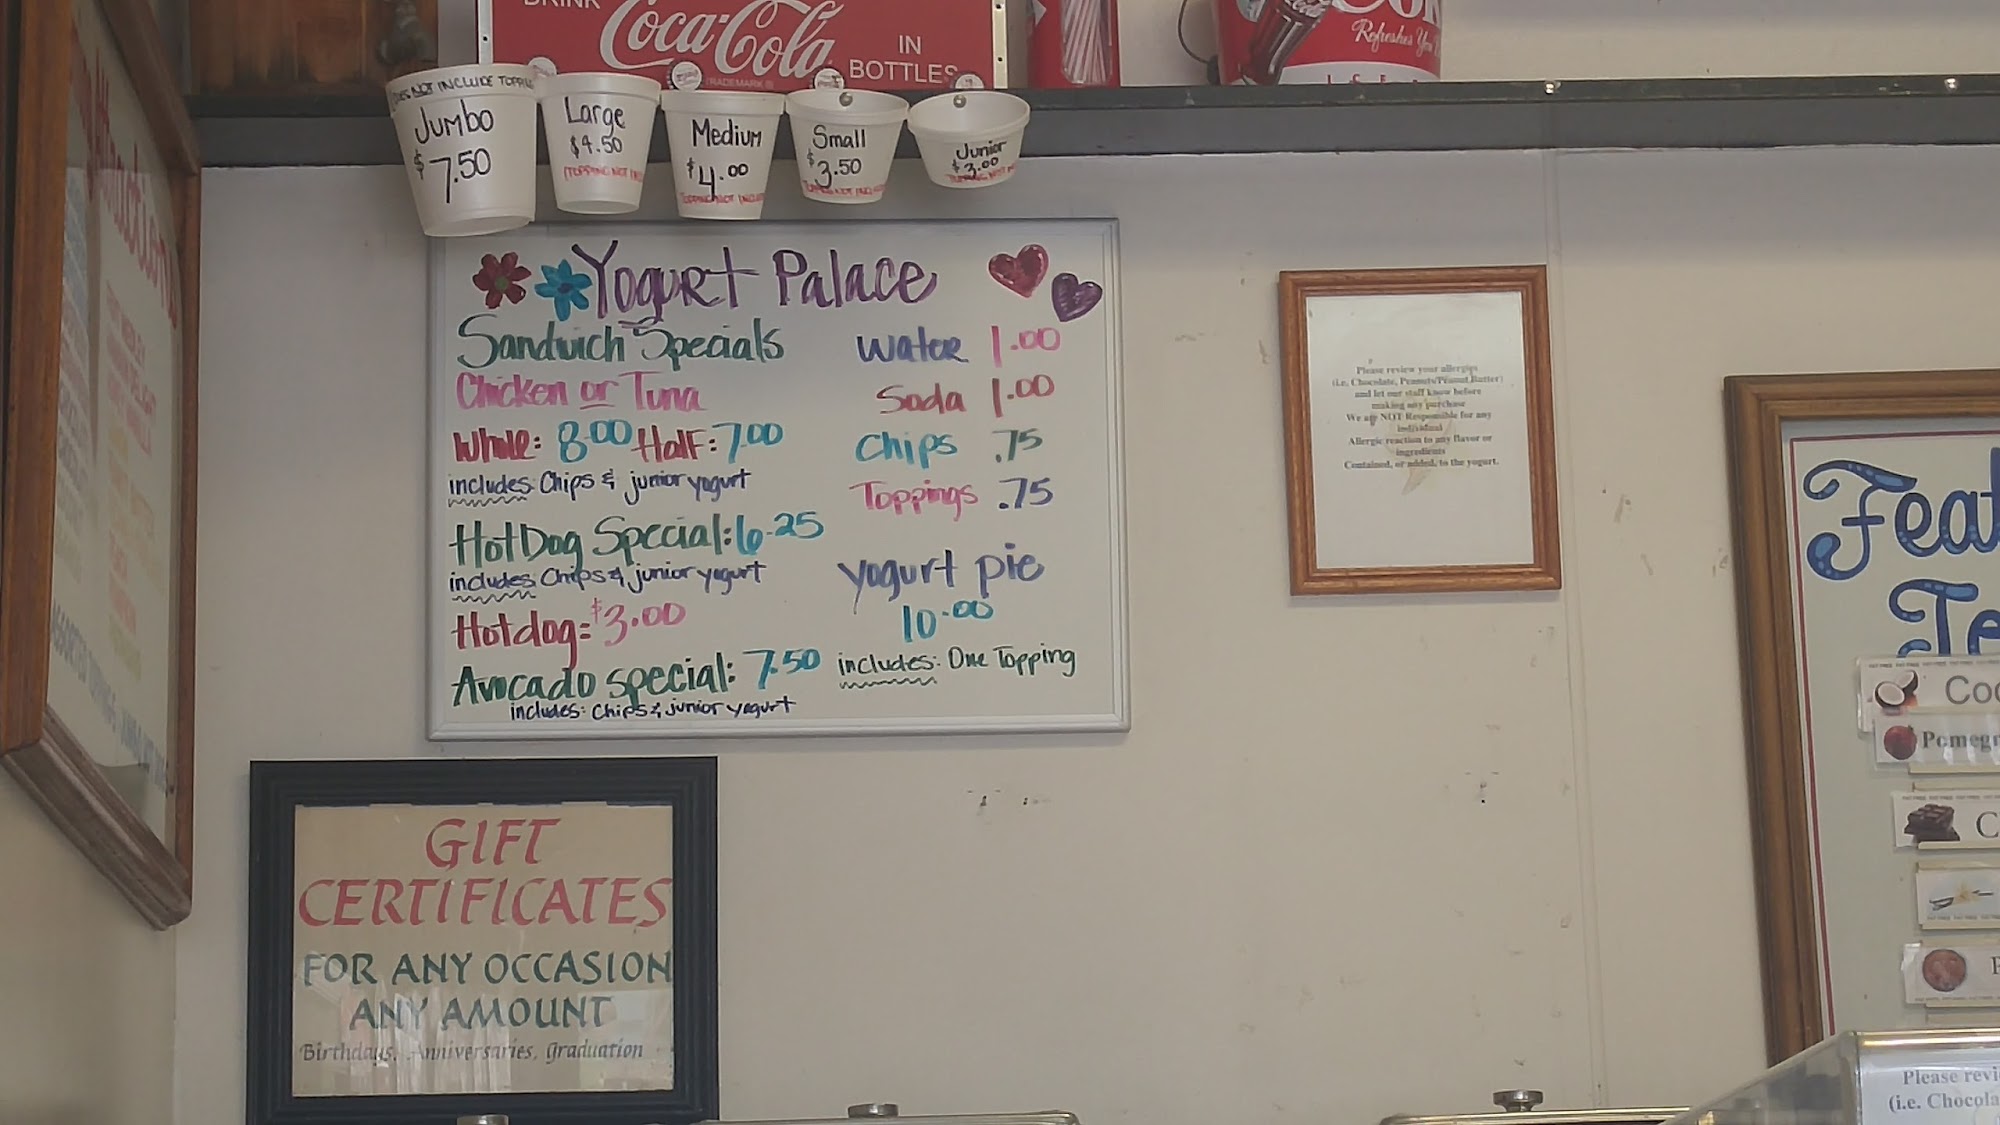 DRINK
Coca-Cola
TRADEMARK ®
IN
BOTTLES
Refreshes You
DOES NOT INCLUDE TOPPING
Jumbo
$7.50
Large
$4.50
(TOPPING NOT
Medium
$4.00
TOPPING NOT INCLU
Small
$3.50
TOPPING NOT INCLU
Junior
$3.00
TOPPING NOT
Yogurt Palace
Sandwich Specials
Chicken or Tuna
Whole: 8.00 Half: 7.00
includes: Chips & junior yogurt
HotDog Special: 6.25
includes: Chips & junior yogurt
Hotdog = $3.00
Avocado special: 7.50
includes: Chips & junior yogurt
Water 1.00
Soda 1.00
Chips .75
Toppings .75
yogurt pie
10.00
includes: One Topping
Please review your allergies
(i.e. Chocolate, Peanuts/Peanut Butter)
and let our staff know before
making any purchase
We are NOT Responsible for any
individual
Allergic reaction to any flavor or
ingredients
Contained, or added, to the yogurt.
GIFT
CERTIFICATES
FOR ANY OCCASION
ANY AMOUNT
Birthdays, Anniversaries, Graduation
Feat
Te
Coc
Pomegr
C
Please revi
(i.e. Chocola